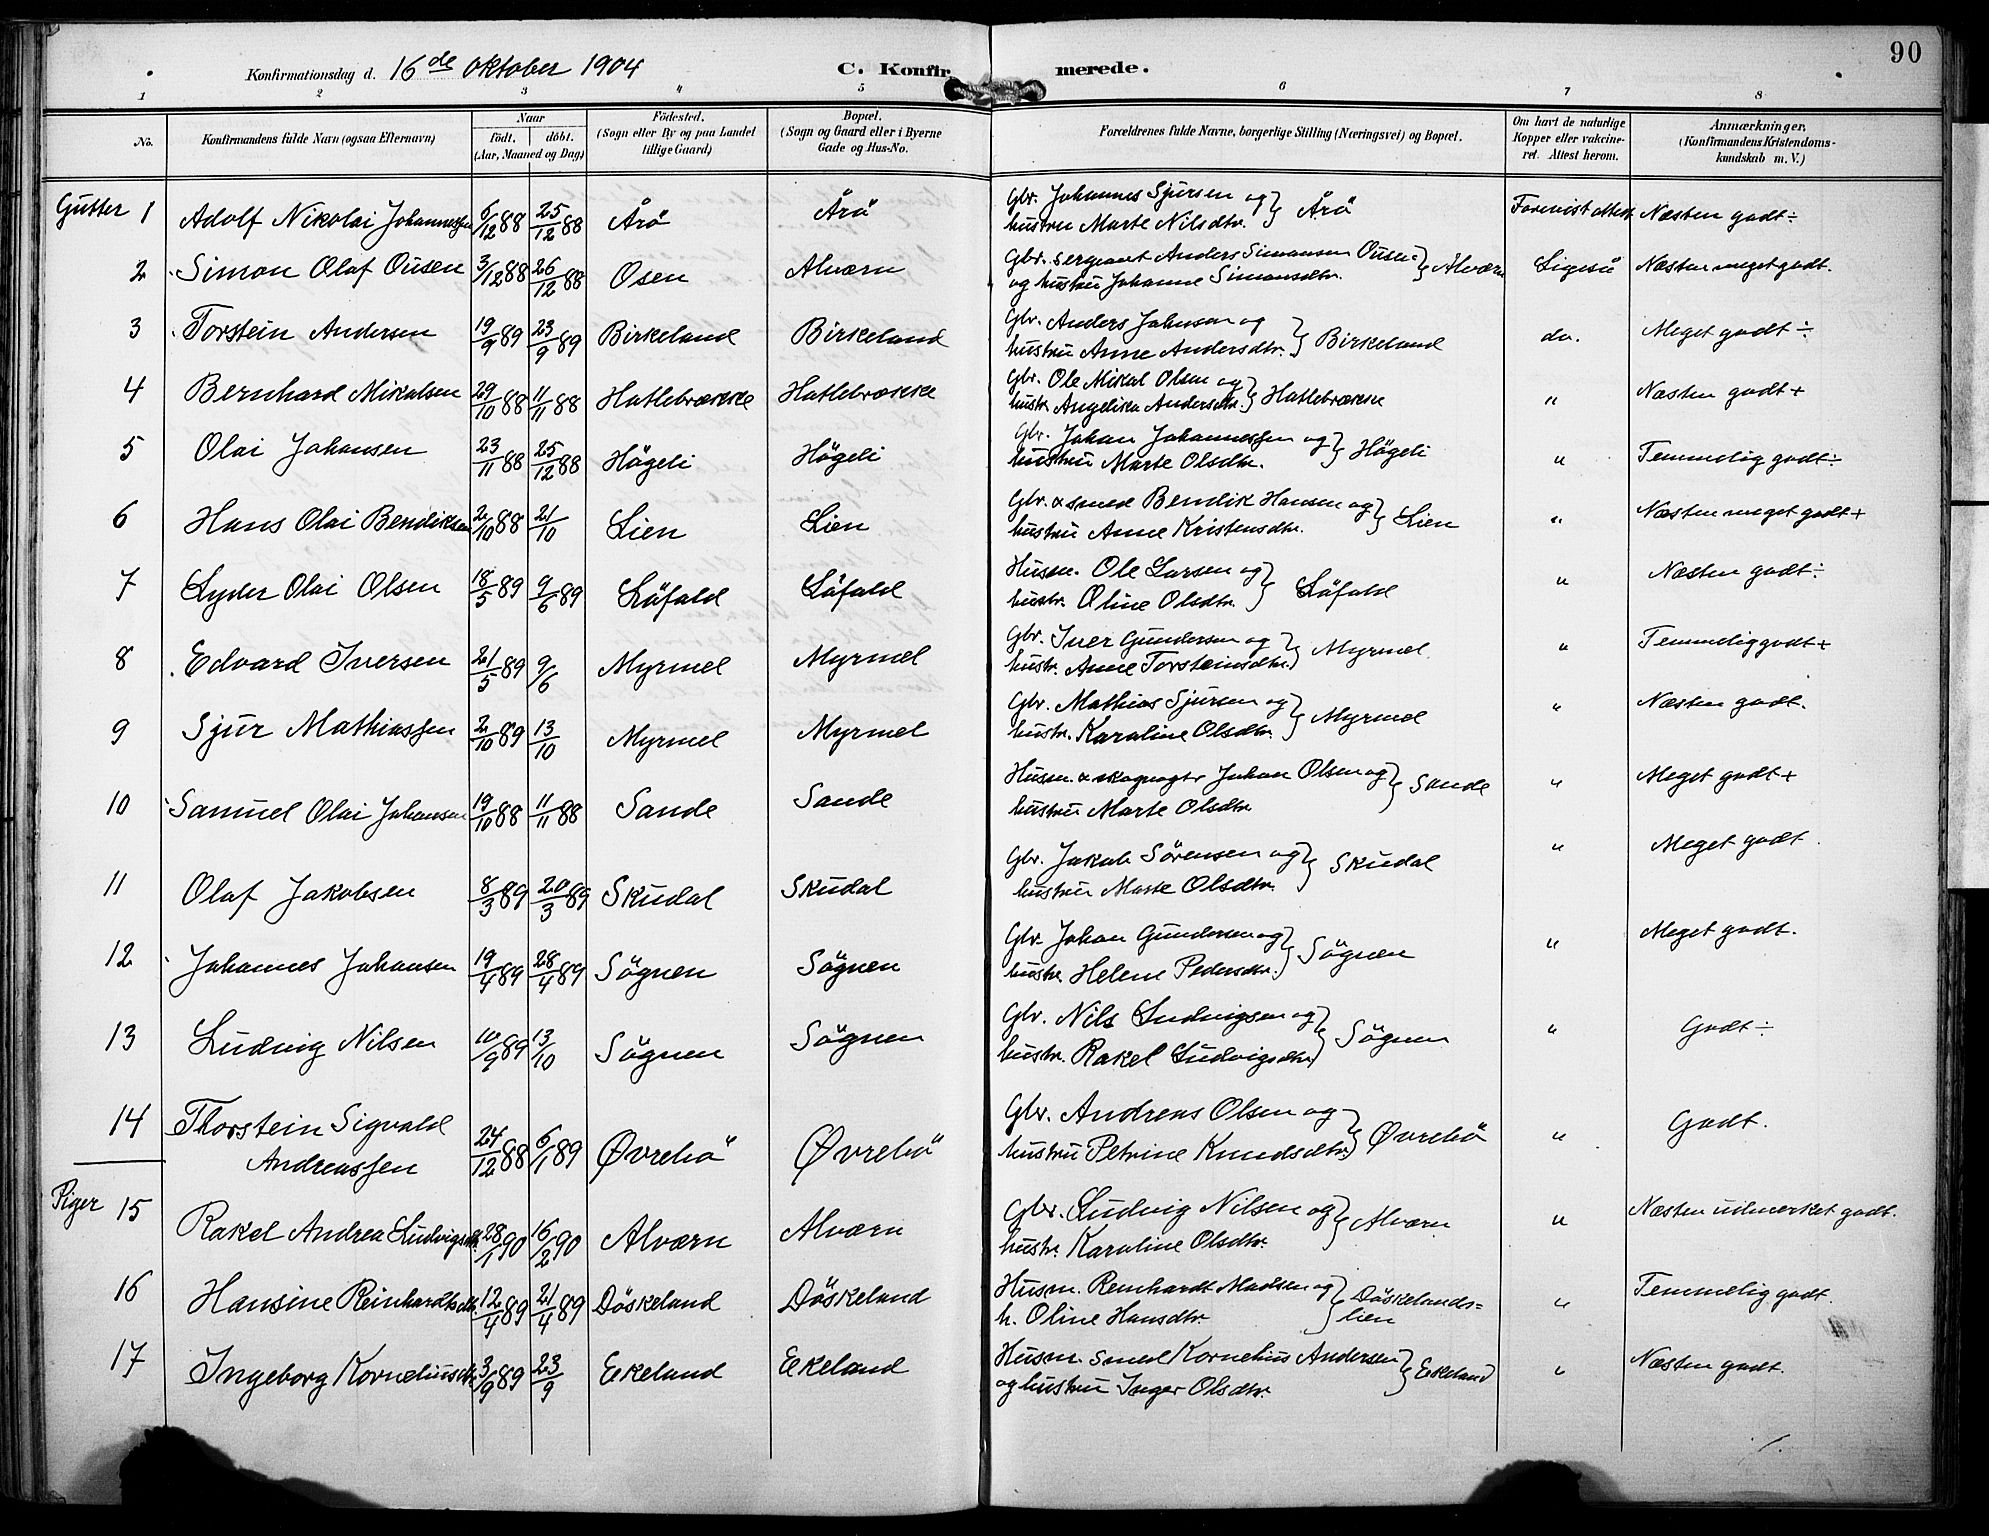 90
Konfirmationsdag d. 16de Oktober 1904 C. Konfirmerede.
1 2 3 4 5 6 7 8
No. Konfirmandens fulde Navn (ogsaa Efternavn) Naar født, døbt. (Aar, Maaned og Dag) Fødested. (Sogn eller By og paa Landet tillige Gaard) Bopæl. (Sogn og Gaard eller i Byerne Gade og Hus-No. Forældrenes fulde Navne, borgerlige Stilling (Næringsvei) og Bopæl. Om havt de naturlige Kopper eller vakcineret. Attest herom. Anmærkninger, (Konfirmandens Kristendomskundskab m. V.)
Gutter 1 Adolf Nikolai Johannessen 6/12 88 25/12 88 Årö Årö Gbr. Johannes Sjursen og hustru Marte Nilsdtr. } Årö Forevist attest Næsten godt ÷
2 Simon Olaf Ousen 3/12 88 26/12 88 Osen Alværn Gbr. sergeant Anders Simonsen Ousen og hustru Johanne Simonsdtr. } Alværn Ligeså Næsten meget godt.
3 Torstein Andersen 19/9 89 23/9 89 Birkeland Birkeland Gbr. Anders Johnson og hustru Anne Andersdtr. } Birkeland do. Meget godt ÷
4 Bernhard Mikalsen 29/10 88 11/11 88 Hatlebrække Hatlebrække Gbr. Ole Mikal Olsen og hustr. Angelika Andersdtr. } Hatlebrække " Næsten godt +
5 Olai Johansen 23/11 88 25/12 88 Högeli Högeli Gbr. Johan Johannessen og hustru Marte Olsdtr. } Högeli " Temmelig godt ÷
6 Hans Olai Bendiksen 2/10 88 21/10 Lien Lien Gbr. & smed Bendik Hansen og hustru Anne Kristensdtr. } Lien " Næsten meget godt +
7 Lyder Olai Olsen 18/5 89 9/6 89 Löfald Löfald Husm. Ole Larsen og hustr. Oline Olsdtr. } Löfald " Næsten godt ÷
8 Edvard Iversen 21/5 89 9/6 Myrmel Myrmel Gbr. Iver Gundersen og hustr. Anne Torsteinsdtr. } Myrmel " Temmelig godt +
9 Sjur Mathiassen 2/10 89 13/10 Myrmel Myrmel Gbr. Mathias Sjursen og hustr. Karoline Olsdtr. } Myrmel " Næsten godt.
10 Samuel Olai Johansen 19/10 88 11/11 88 Sande Sande Husm. & skogvogter Johan Olsen og hustru Marte Olsdtr } Sande " Meget godt +
11 Olaf Jakobsen 8/3 89 20/3 89 Skudal Skudal Gbr. Jakob Sörensen og hustru Marte Olsdtr. } Skudal " Meget godt.
12 Johannes Johansen 19/4 89 28/4 89 Sögnen Sögnen Gbr. Johan Gundersen og hustr. Helene Pedersdtr. } Sögnen " Meget godt.
13 Ludvig Nilsen 10/9 89 13/10 Sögnen Sögnen Gbr. Nils Ludvigsen og hustr. Rakel Ludvigsdtr } Sögnen " Godt ÷
14 Thorstein Sigvald Andreassen 24/12 88 6/1 89 Øvrebö Øvrebö Gbr. Andreas Olsen og hustru Petrine Knudsdtr } Øvrebö " Godt.
Piger 15 Rakel Andrea Ludvigsdtr. 28/1 90 16/2 90 Alværn Alværn Gbr. Ludvig Nilsen og hustr. Karoline Olsdtr. } Alværn " Næsten udmerket godt.
16 Hansine Reinhardtsdtr. 12/4 89 21/4 89 Döskeland Döskeland Husm. Reinhardt Madsen og h. Oline Hansdtr. } Döskelands=lien " Temmelig godt.
17 Ingeborg Korneliusdtr. 3/9 89 23/9 Eekeland Eekeland Husm. smed Kornelius Andersen og hustru Inger Olsdtr. } Eekeland " Næsten godt.